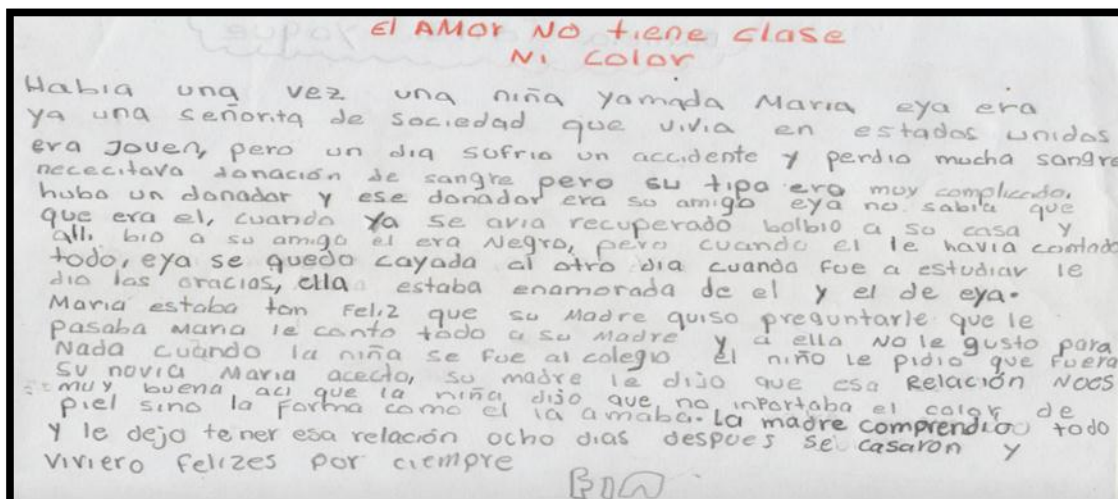 El AMOR NO tiene clase
Ni color
Habia una vez una niña yamada Maria eya era
ya una señorita de sociedad que vivia en estados unidos
era joven, pero un dia sufrio un accidente y perdio mucha sangre
nececitava donación de sangre pero su tipo era muy complicado,
hubo un donador y ese donador era su amigo eya no sabia que
que era el, cuando ya se avia recuperado bolbio a su casa y
alli bio a su amigo el era Negro, pero cuando el le havia contado
todo, eya se quedo cayada al otro dia cuando fue a estudiar le
dio las gracias, ella estaba enamorada de el y el de eya.
Maria estaba tan Feliz que su Madre quiso preguntarle que le
pasaba Maria le conto todo a su Madre y a ella No le gusto para
Nada cuando la niña se fue al colegio el niño le pidio que fuera
su novia Maria acecto, su madre le dijo que esa Relación NOes
muy buena aci que la niña dijo que no inportaba el color de
piel sino la forma como el la amaba. La madre comprendio todo
y le dejo tener esa relación ocho dias despues se casaron y
viviero felizes por ciempre
FIN